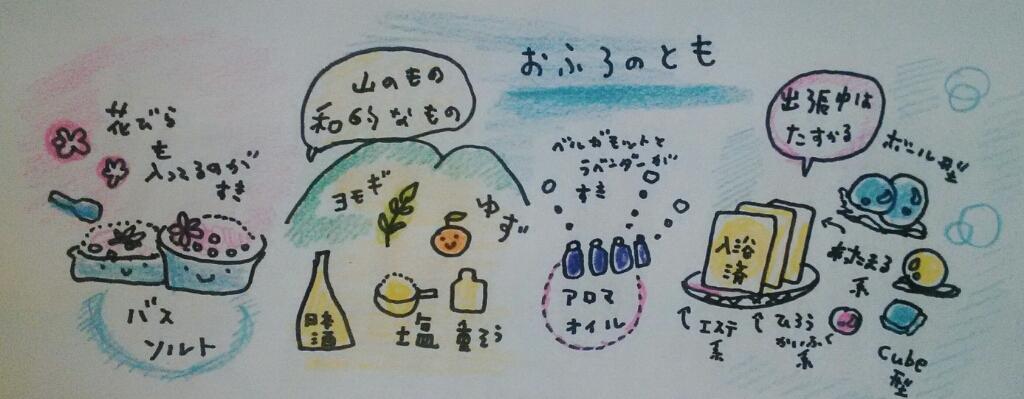 おふろのとも
花びら
も
入ってるのが
すき
バス
ソルト
山のもの
和的なもの
ヨモギ
ゆず
日本
酒
塩
重そう
ベルガモットと
ラベンダーが
すき
アロマ
オイル
出張中は
たすかる
入浴
済
エステ
系
ひろう
かいふく
系
あったまる
系
ボール型
cube
型